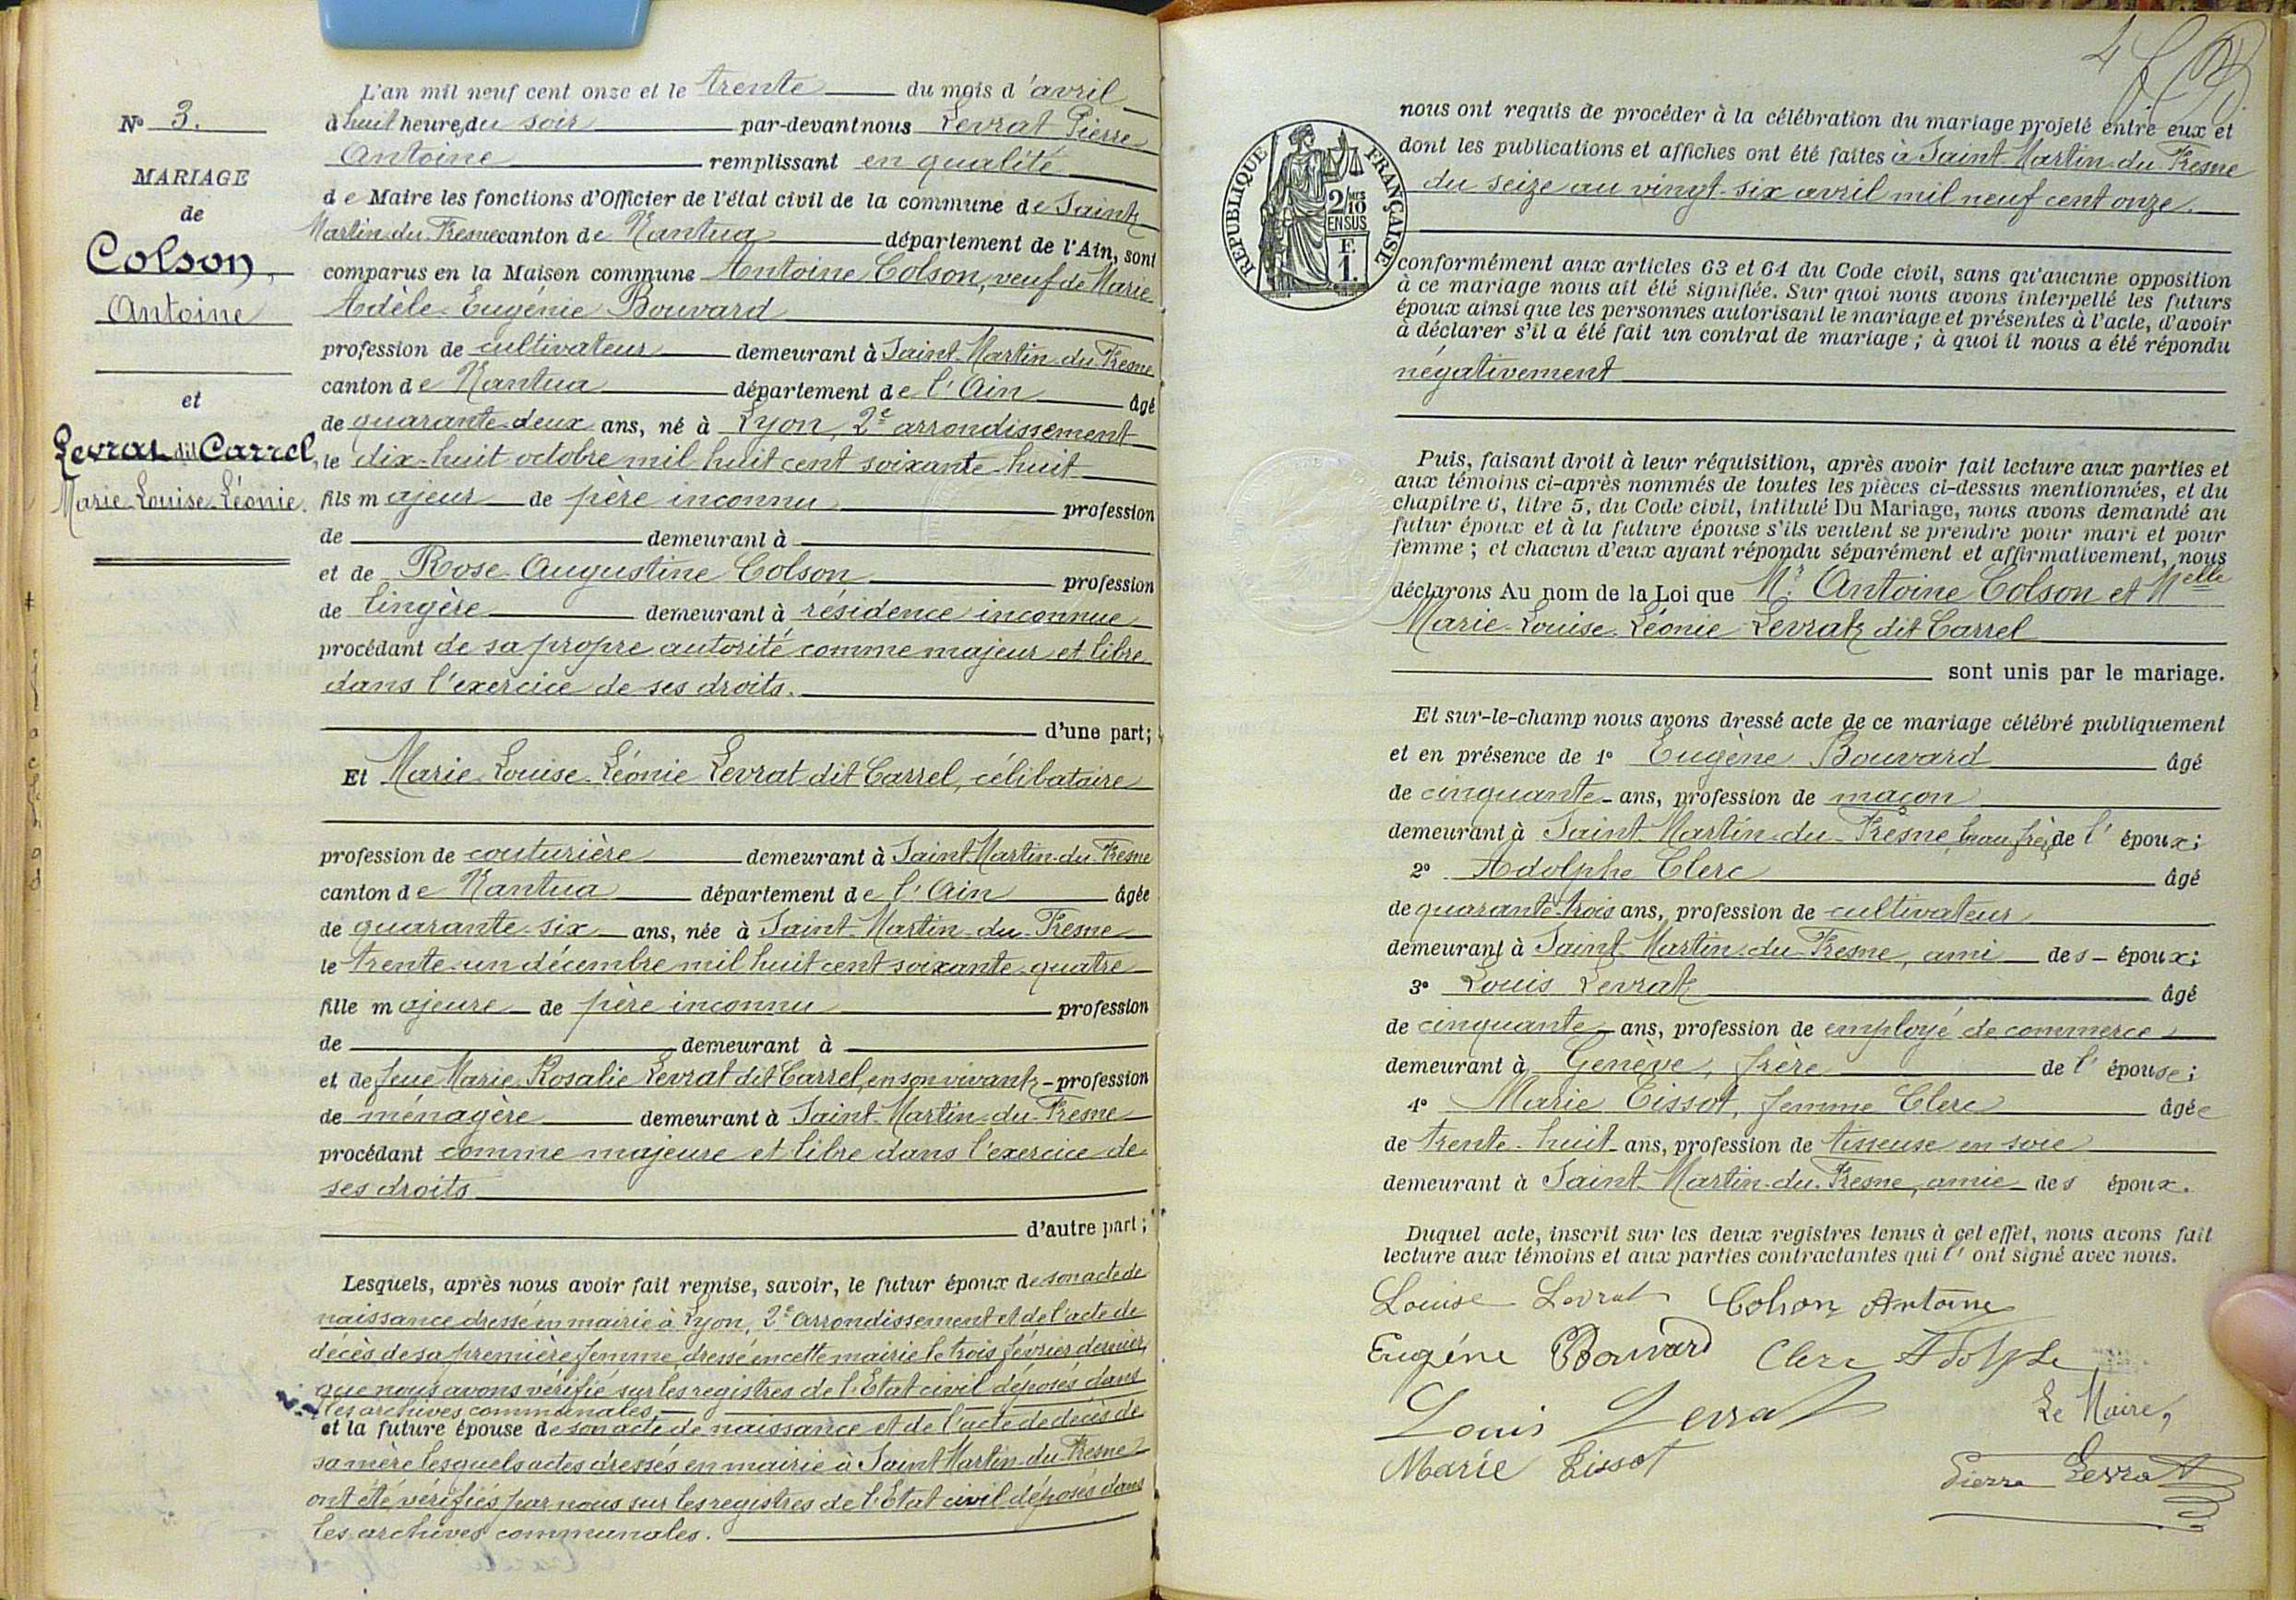 N° 3.
MARIAGE
de
Colson,
Antoine
et
Levrat dit Carrel,
Marie Louise Léonie.
L'an mil neuf cent onze et le trente du mois d'avril
à huit heures du soir par-devant nous Levrat Pierre
Antoine remplissant en qualité
de Maire les fonctions d'Officier de l'état civil de la commune de Saint
Martin-du-Fresne canton de Nantua département de l'Ain, sont
comparus en la Maison commune Antoine Colson, veuf de Marie
Adèle Eugénie Bouvard
profession de cultivateur demeurant à Saint-Martin-du-Fresne
canton de Nantua département de l'Ain âgé
de quarante-deux ans, né à Lyon, 2e arrondissement
le dix-huit octobre mil huit cent soixante-huit
fils majeur de père inconnu profession
de demeurant à
et de Rose Augustine Colson profession
de lingère demeurant à résidence inconnue
procédant de sa propre autorité comme majeur et libre
dans l'exercice de ses droits.
d'une part;
Et Marie Louise Léonie Levrat dit Carrel, célibataire
profession de couturière demeurant à Saint-Martin-du-Fresne
canton de Nantua département de l'Ain âgée
de quarante-six ans, née à Saint-Martin-du-Fresne
le trente-un décembre mil huit cent soixante-quatre
fille majeure de père inconnu profession
de demeurant à
et de feue Marie Rosalie Levrat dit Carrel, en son vivant, - profession
de ménagère demeurant à Saint-Martin-du-Fresne
procédant comme majeure et libre dans l'exercice de
ses droits
d'autre part;
Lesquels, après nous avoir fait remise, savoir, le futur époux de son acte de
naissance dressé en mairie à Lyon, 2e arrondissement et de l'acte de
décès de sa première femme dressé en cette mairie le trois février dernier,
que nous avons vérifié sur les registres de l'Etat civil déposés dans
les archives communales
et la future épouse de son acte de naissance et de l'acte de décès de
sa mère lesquels actes dressés en mairie à Saint-Martin-du-Fresne
ont été vérifiés par nous sur les registres de l'Etat civil déposés dans
les archives communales.
4
RÉPUBLIQUE FRANÇAISE
2/10
EN SUS
F.
1.
nous ont requis de procéder à la célébration du mariage projeté entre eux et
dont les publications et affiches ont été faites à Saint-Martin-du-Fresne
du seize au vingt-six avril mil neuf cent onze.
conformément aux articles 63 et 64 du Code civil, sans qu'aucune opposition
à ce mariage nous ait été signifiée. Sur quoi nous avons interpellé les futurs
époux ainsi que les personnes autorisant le mariage et présentes à l'acte, d'avoir
à déclarer s'il a été fait un contrat de mariage; à quoi il nous a été répondu
négativement
Puis, faisant droit à leur réquisition, après avoir fait lecture aux parties et
aux témoins ci-après nommés de toutes les pièces ci-dessus mentionnées, et du
chapitre 6, titre 5, du Code civil, intitulé Du Mariage, nous avons demandé au
futur époux et à la future épouse s'ils veulent se prendre pour mari et pour
femme; et chacun d'eux ayant répondu séparément et affirmativement, nous
déclarons Au nom de la Loi que Mr. Antoine Colson et Melle
Marie Louise Léonie Levrat dit Carrel
sont unis par le mariage.
Et sur-le-champ nous avons dressé acte de ce mariage célébré publiquement
et en présence de 1° Eugène Bouvard âgé
de cinquante ans, profession de maçon
demeurant à Saint-Martin-du-Fresne, beau-frère de l'époux;
2° Adolphe Clerc âgé
de quarante-trois ans, profession de cultivateur
demeurant à Saint-Martin-du-Fresne, ami des - époux;
3° Louis Levrat âgé
de cinquante ans, profession de employé de commerce
demeurant à Genève, frère de l'épouse;
4° Marie Tissot, femme Clerc âgée
de trente-huit ans, profession de tisseuse en soie
demeurant à Saint-Martin-du-Fresne, amie des époux.
Duquel acte, inscrit sur les deux registres tenus à cet effet, nous avons fait
lecture aux témoins et aux parties contractantes qui l'ont signé avec nous.
Louise Levrat Colson Antoine
Eugène Bouvard Clerc Adolphe
Louis Levrat Le Maire,
Marie Tissot Pierre Levrat